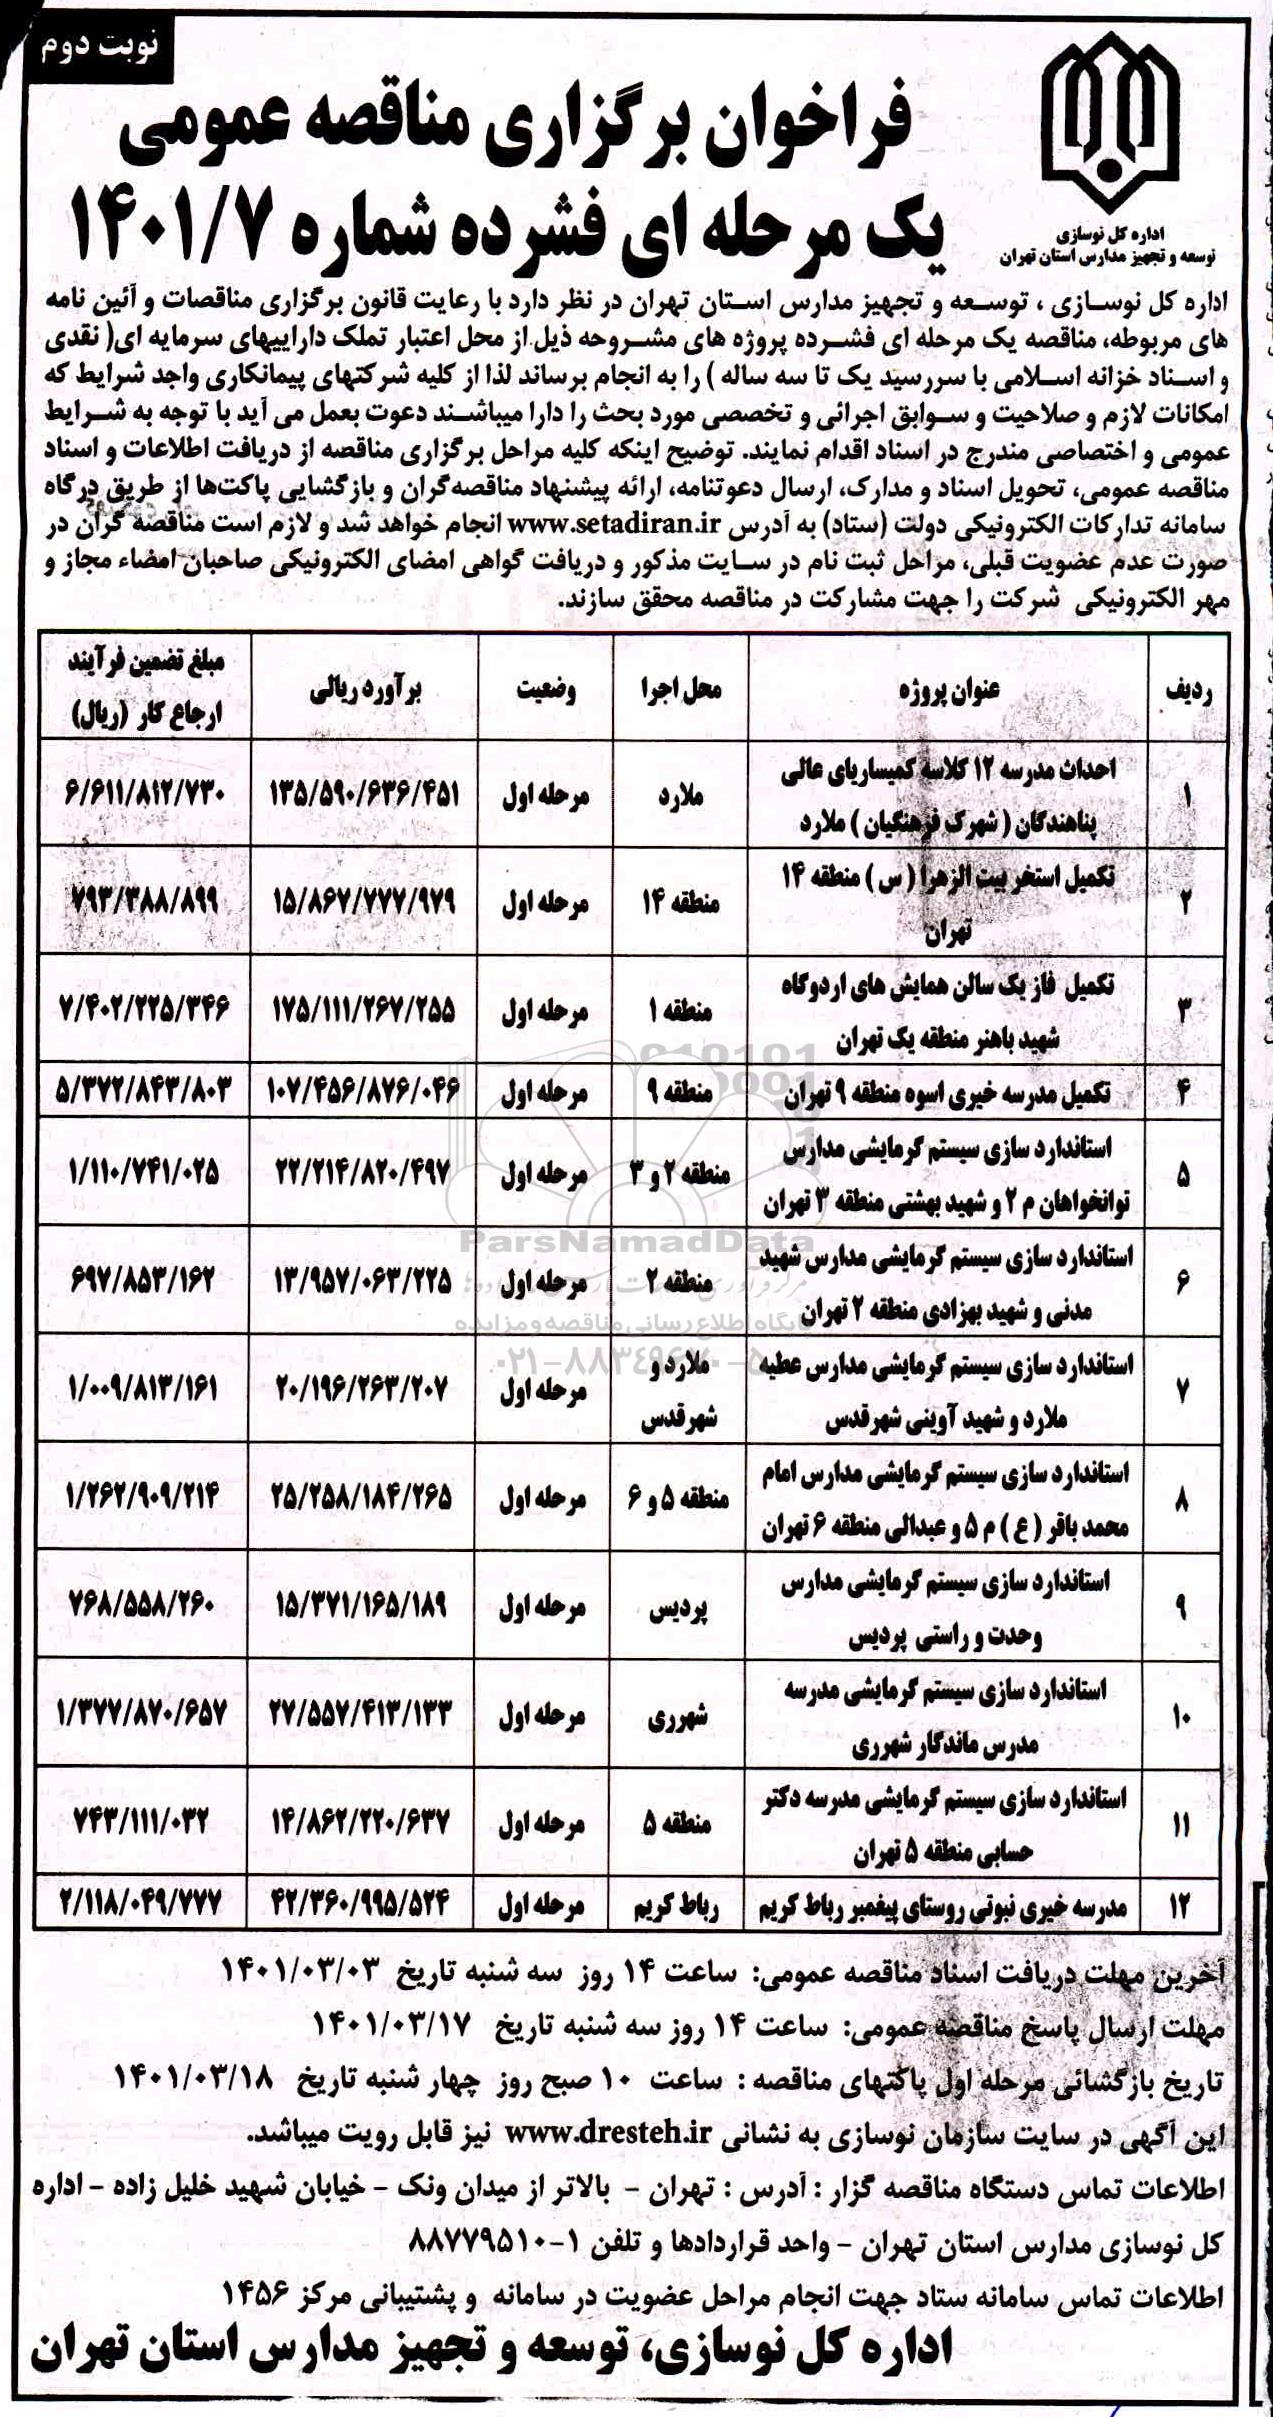 نوبت دوم
فراخوان برگزاری مناقصه عمومی
یک مرحله ای فشرده شماره ۱۴۰۱/۷
اداره کل نوسازی
توسعه و تجهیز مدارس استان تهران
اداره کل نوسازی ، توسعه و تجهیز مدارس استان تهران در نظر دارد با رعایت قانون برگزاری مناقصات و آئین نامه
های مربوطه، مناقصه یک مرحله ای فشرده پروژه های مشروحه ذیل از محل اعتبار تملک داراییهای سرمایه ای( نقدی
و اسناد خزانه اسلامی با سررسید یک تا سه ساله ) را به انجام برساند لذا از کلیه شرکتهای پیمانکاری واجد شرایط که
امکانات لازم و صلاحیت و سوابق اجرائی و تخصصی مورد بحث را دارا میباشند دعوت بعمل می آید با توجه به شرایط
عمومی و اختصاصی مندرج در اسناد اقدام نمایند. توضیح اینکه کلیه مراحل برگزاری مناقصه از دریافت اطلاعات و اسناد
مناقصه عمومی، تحویل اسناد و مدارک، ارسال دعوتنامه، ارائه پیشنهاد مناقصه‌گران و بازگشایی پاکت‌ها از طریق درگاه
سامانه تدارکات الکترونیکی دولت (ستاد) به آدرس www.setadiran.ir انجام خواهد شد و لازم است مناقصه گران در
صورت عدم عضویت قبلی، مراحل ثبت نام در سایت مذکور و دریافت گواهی امضای الکترونیکی صاحبان امضاء مجاز و
مهر الکترونیکی شرکت را جهت مشارکت در مناقصه محقق سازند.
ردیف عنوان پروژه محل اجرا وضعیت برآورد ریالی مبلغ تضمین فرآیند ارجاع کار (ریال)
۱ احداث مدرسه ۱۲ کلاسه کمیساریای عالی پناهندگان ( شهرک فرهنگیان ) ملارد ملارد مرحله اول ۱۳۵/۵۹۰/۶۳۶/۴۵۱ ۶/۶۱۱/۸۱۲/۷۳۰
۲ تکمیل استخر بیت الزهرا ( س ) منطقه ۱۴ تهران منطقه ۱۴ مرحله اول ۱۵/۸۶۷/۷۷۷/۹۷۹ ۷۹۳/۳۸۸/۸۹۹
۳ تکمیل فاز یک سالن همایش های اردوگاه شهید باهنر منطقه یک تهران منطقه ۱ مرحله اول ۱۷۵/۱۱۱/۲۶۷/۲۵۵ ۷/۴۰۲/۲۲۵/۳۴۶
۴ تکمیل مدرسه خیری اسوه منطقه ۹ تهران منطقه ۹ مرحله اول ۱۰۷/۴۵۶/۸۷۶/۰۴۶ ۵/۳۷۲/۸۴۳/۸۰۳
۵ استاندارد سازی سیستم گرمایشی مدارس توانخواهان م ۲ و شهید بهشتی منطقه ۳ تهران منطقه ۲ و ۳ مرحله اول ۲۲/۲۱۴/۸۲۰/۴۹۷ ۱/۱۱۰/۷۴۱/۰۲۵
۶ استاندارد سازی سیستم گرمایشی مدارس شهید مدنی و شهید بهزادی منطقه ۲ تهران منطقه ۲ مرحله اول ۱۳/۹۵۷/۰۶۳/۲۲۵ ۶۹۷/۸۵۳/۱۶۲
۷ استاندارد سازی سیستم گرمایشی مدارس عطیه ملارد و شهید آوینی شهرقدس ملارد و شهرقدس مرحله اول ۲۰/۱۹۶/۲۶۳/۲۰۷ ۱/۰۰۹/۸۱۳/۱۶۱
۸ استاندارد سازی سیستم گرمایشی مدارس امام محمد باقر ( ع ) م ۵ و عبدالی منطقه ۶ تهران منطقه ۵ و ۶ مرحله اول ۲۵/۲۵۸/۱۸۴/۲۶۵ ۱/۲۶۲/۹۰۹/۲۱۴
۹ استاندارد سازی سیستم گرمایشی مدارس وحدت و راستی پردیس پردیس مرحله اول ۱۵/۳۷۱/۱۶۵/۱۸۹ ۷۶۸/۵۵۸/۲۶۰
۱۰ استاندارد سازی سیستم گرمایشی مدرسه مدرس ماندگار شهرری شهرری مرحله اول ۲۷/۵۵۷/۴۱۳/۱۳۳ ۱/۳۷۷/۸۷۰/۶۵۷
۱۱ استاندارد سازی سیستم گرمایشی مدرسه دکتر حسابی منطقه ۵ تهران منطقه ۵ مرحله اول ۱۴/۸۶۲/۲۲۰/۶۳۷ ۷۴۳/۱۱۱/۰۳۲
۱۲ مدرسه خیری نبوتی روستای پیغمبر رباط کریم رباط کریم مرحله اول ۴۲/۳۶۰/۹۹۵/۵۲۴ ۲/۱۱۸/۰۴۹/۷۷۷
ParsNamadData
پایگاه اطلاع رسانی مناقصه و مزایده
۰۲۱-۸۸۳۴۹۶۷۰-۵
آخرین مهلت دریافت اسناد مناقصه عمومی: ساعت ۱۴ روز سه شنبه تاریخ ۱۴۰۱/۰۳/۰۳
مهلت ارسال پاسخ مناقصه عمومی: ساعت ۱۴ روز سه شنبه تاریخ ۱۴۰۱/۰۳/۱۷
تاریخ بازگشائی مرحله اول پاکتهای مناقصه : ساعت ۱۰ صبح روز چهار شنبه تاریخ ۱۴۰۱/۰۳/۱۸
این آگهی در سایت سازمان نوسازی به نشانی www.dresteh.ir نیز قابل رویت میباشد.
اطلاعات تماس دستگاه مناقصه گزار : آدرس : تهران - بالاتر از میدان ونک - خیابان شهید خلیل زاده - اداره
کل نوسازی مدارس استان تهران - واحد قراردادها و تلفن ۱-۸۸۷۷۹۵۱۰
اطلاعات تماس سامانه ستاد جهت انجام مراحل عضویت در سامانه و پشتیبانی مرکز ۱۴۵۶
اداره کل نوسازی، توسعه و تجهیز مدارس استان تهران